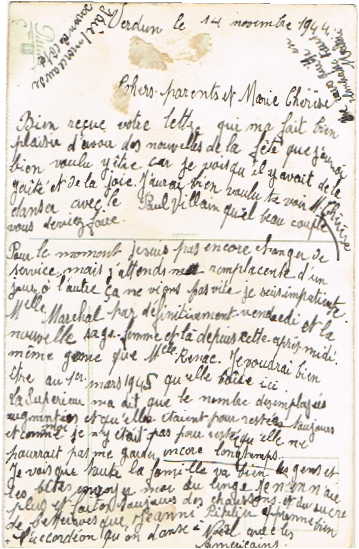 Verdun le 14 novembre 1944.
Chers parents et Marie Chérise
Bien reçue votre lettre qui ma fait bien
plaisir d'avoir des nouvelles de la fête que j'aurai
bien voulu y être car je vois qu'il y avait de la
gaité et de la joie. J'aurai bien voulu te voir
danser avec le Paul Villain quel beau couple
vous deviez faire.
Pour le moment je suis pas encore changer de
service mais j'attends ma remplacente d'un
jour à l'autre ça ne vient pas vite je suis impatiente.
Melle Marchal par définitivement vendredi et la
nouvelle sage-femme et là depuis cette après midi
même genre que Melle Je voudrai bien
être au 1er mars 1945 qu'elle ici
La Supérieur ma dit que le nombre d'employés
augmenter et qu'elles étaient pour restées toujours
et comme moi je n'y était pas pour rester qu'elle ne
pourrait pas me garder encore longtemps.
Je vois que toute la famille va bien les gens et
les bêtes moi du linge j'en en n'ai
plus et des chaussons et du sucre
de que Jeanne apprenne bien
l'accordion qu'on danse à Noël avec les
Américains.